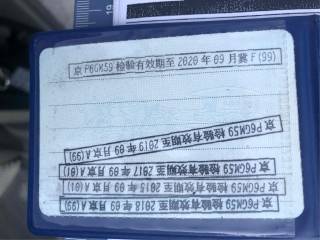 京P6GM59检验有效期至2020年09月冀F(99)
京P6GM59检验有效期至2019年09月京A(99)
京P6GM59检验有效期至2017年09月京A(01)
京P6GM59检验有效期至2015年09月京A(01)
京P6GM59检验有效期至2018年09月京A(99)